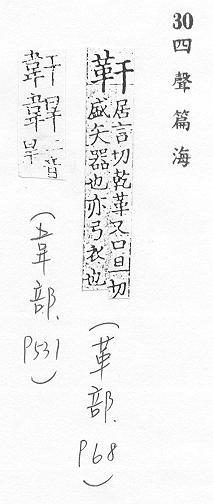 30 四聲篇海
靬 居言切乾革又口旦切
盛矢器也亦弓衣也
(革部. P68)
(韋部. P531)